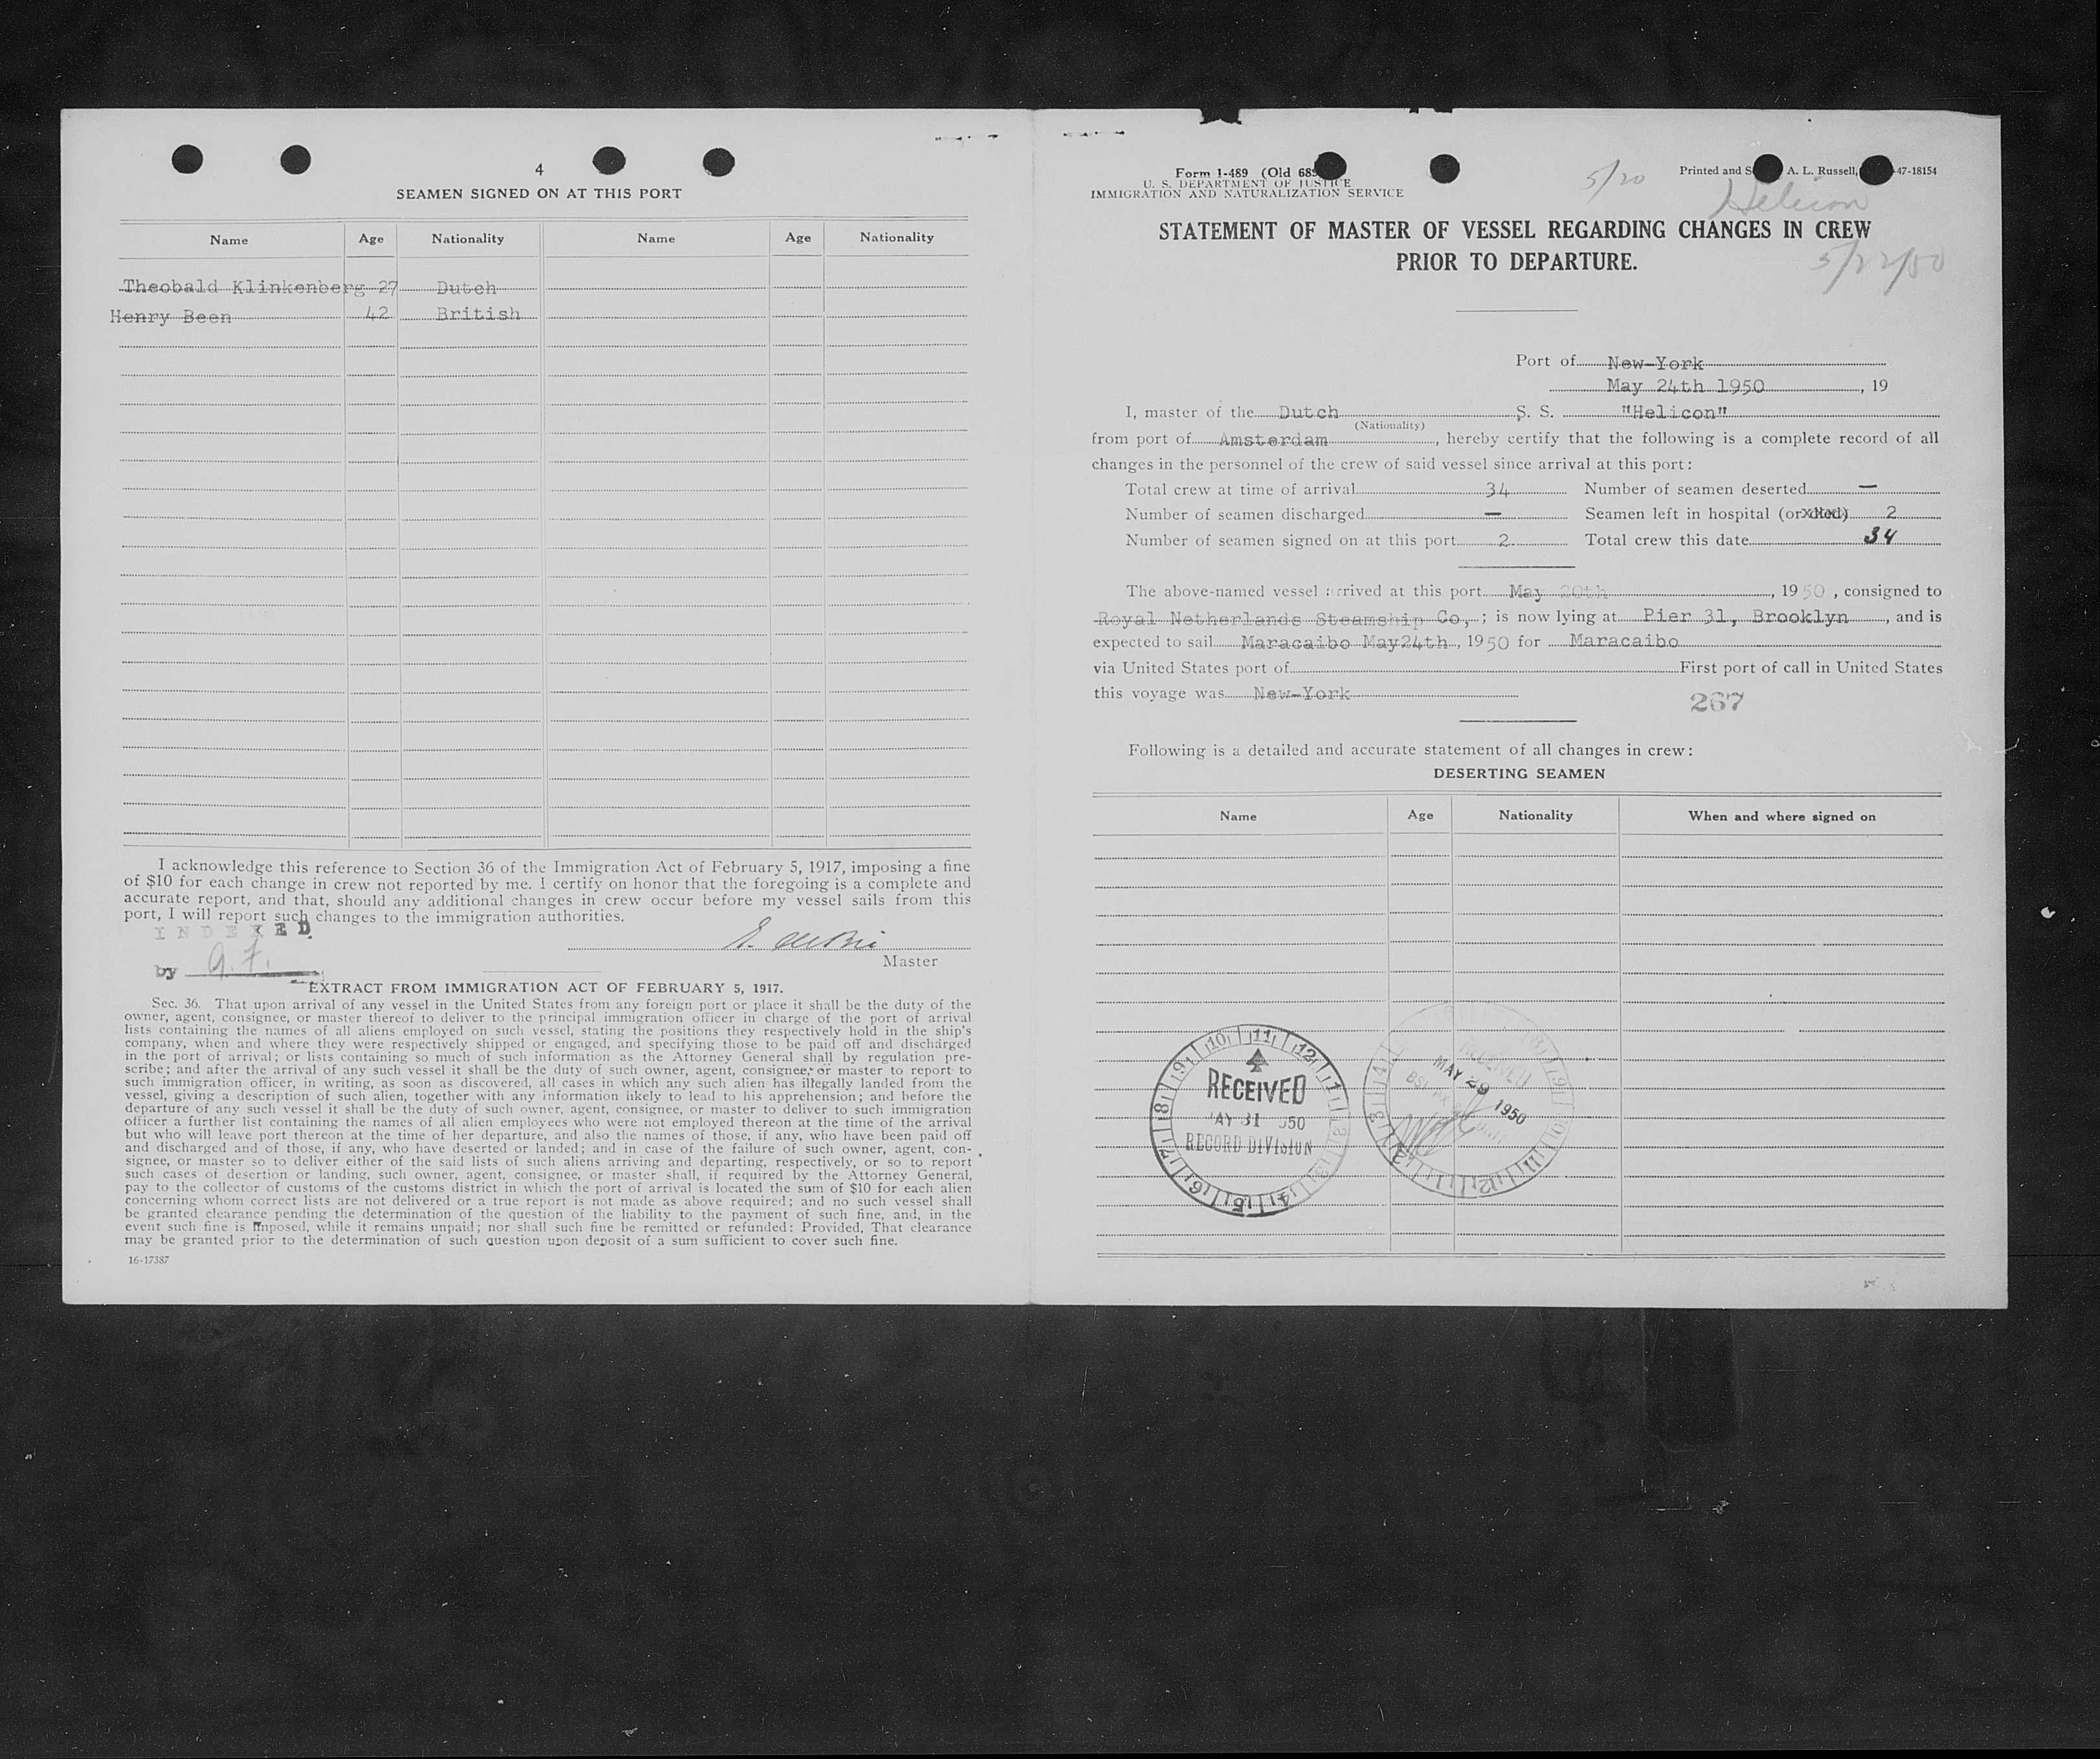 4
SEAMEN SIGNED ON AT THIS PORT
Name Age Nationality Name Age Nationality
Theobald Klinkenberg 27 Dutch
Henry Been 42 British
I acknowledge this reference to Section 36 of the Immigration Act of February 5, 1917, imposing a fine
of $10 for each change in crew not reported by me. I certify on honor that the foregoing is a complete and
accurate report, and that, should any additional changes in crew occur before my vessel sails from this
port, I will report such changes to the immigration authorities.
INDEXED
by G. F.
Master
EXTRACT FROM IMMIGRATION ACT OF FEBRUARY 5, 1917.
Sec. 36. That upon arrival of any vessel in the United States from any foreign port or place it shall be the duty of the
owner, agent, consignee, or master thereof to deliver to the principal immigration officer in charge of the port of arrival
lists containing the names of all aliens employed on such vessel, stating the positions they respectively hold in the ship's
company, when and where they were respectively shipped or engaged, and specifying those to be paid off and discharged
in the port of arrival; or lists containing so much of such information as the Attorney General shall by regulation pre-
scribe; and after the arrival of any such vessel it shall be the duty of such owner, agent, consignee, or master to report to
such immigration officer, in writing, as soon as discovered, all cases in which any such alien has illegally landed from the
vessel, giving a description of such alien, together with any information likely to lead to his apprehension; and before the
departure of any such vessel it shall be the duty of such owner, agent, consignee, or master to deliver to such immigration
officer a further list containing the names of all alien employees who were not employed thereon at the time of the arrival
but who will leave port thereon at the time of her departure, and also the names of those, if any, who have been paid off
and discharged and of those, if any, who have deserted or landed; and in case of the failure of such owner, agent, con-
signee, or master so to deliver either of the said lists of such aliens arriving and departing, respectively, or so to report
such cases of desertion or landing, such owner, agent, consignee, or master shall, if required by the Attorney General,
pay to the collector of customs of the customs district in which the port of arrival is located the sum of $10 for each alien
concerning whom correct lists are not delivered or a true report is not made as above required; and no such vessel shall
be granted clearance pending the determination of the question of the liability to the payment of such fine, and, in the
event such fine is imposed, while it remains unpaid; nor shall such fine be remitted or refunded: Provided, That clearance
may be granted prior to the determination of such question upon deposit of a sum sufficient to cover such fine.
16-17387
Form 1-489 (Old 689
U. S. DEPARTMENT OF JUSTICE
IMMIGRATION AND NATURALIZATION SERVICE
5/20
Printed and S A. L. Russell, 47-18154
Helicon
STATEMENT OF MASTER OF VESSEL REGARDING CHANGES IN CREW
PRIOR TO DEPARTURE.
5/22/50
Port of New-York
May 24th 1950, 19
I, master of the Dutch S. S. "Helicon"
(Nationality)
from port of Amsterdam, hereby certify that the following is a complete record of all
changes in the personnel of the crew of said vessel since arrival at this port:
Total crew at time of arrival 34 Number of seamen deserted —
Number of seamen discharged — Seamen left in hospital (or died) 2
Number of seamen signed on at this port 2 Total crew this date 34
The above-named vessel arrived at this port May 20th, 1950, consigned to
Royal Netherlands Steamship Co,; is now lying at Pier 31, Brooklyn, and is
expected to sail Maracaibo May24th, 1950 for Maracaibo
via United States port of First port of call in United States
this voyage was New-York
267
Following is a detailed and accurate statement of all changes in crew:
DESERTING SEAMEN
Name Age Nationality When and where signed on
10 11 12 1 2 3 4 5 6 7 8 9
RECEIVED
MAY 31 1950
RECORD DIVISION
RECEIVED
MAY 29 1950